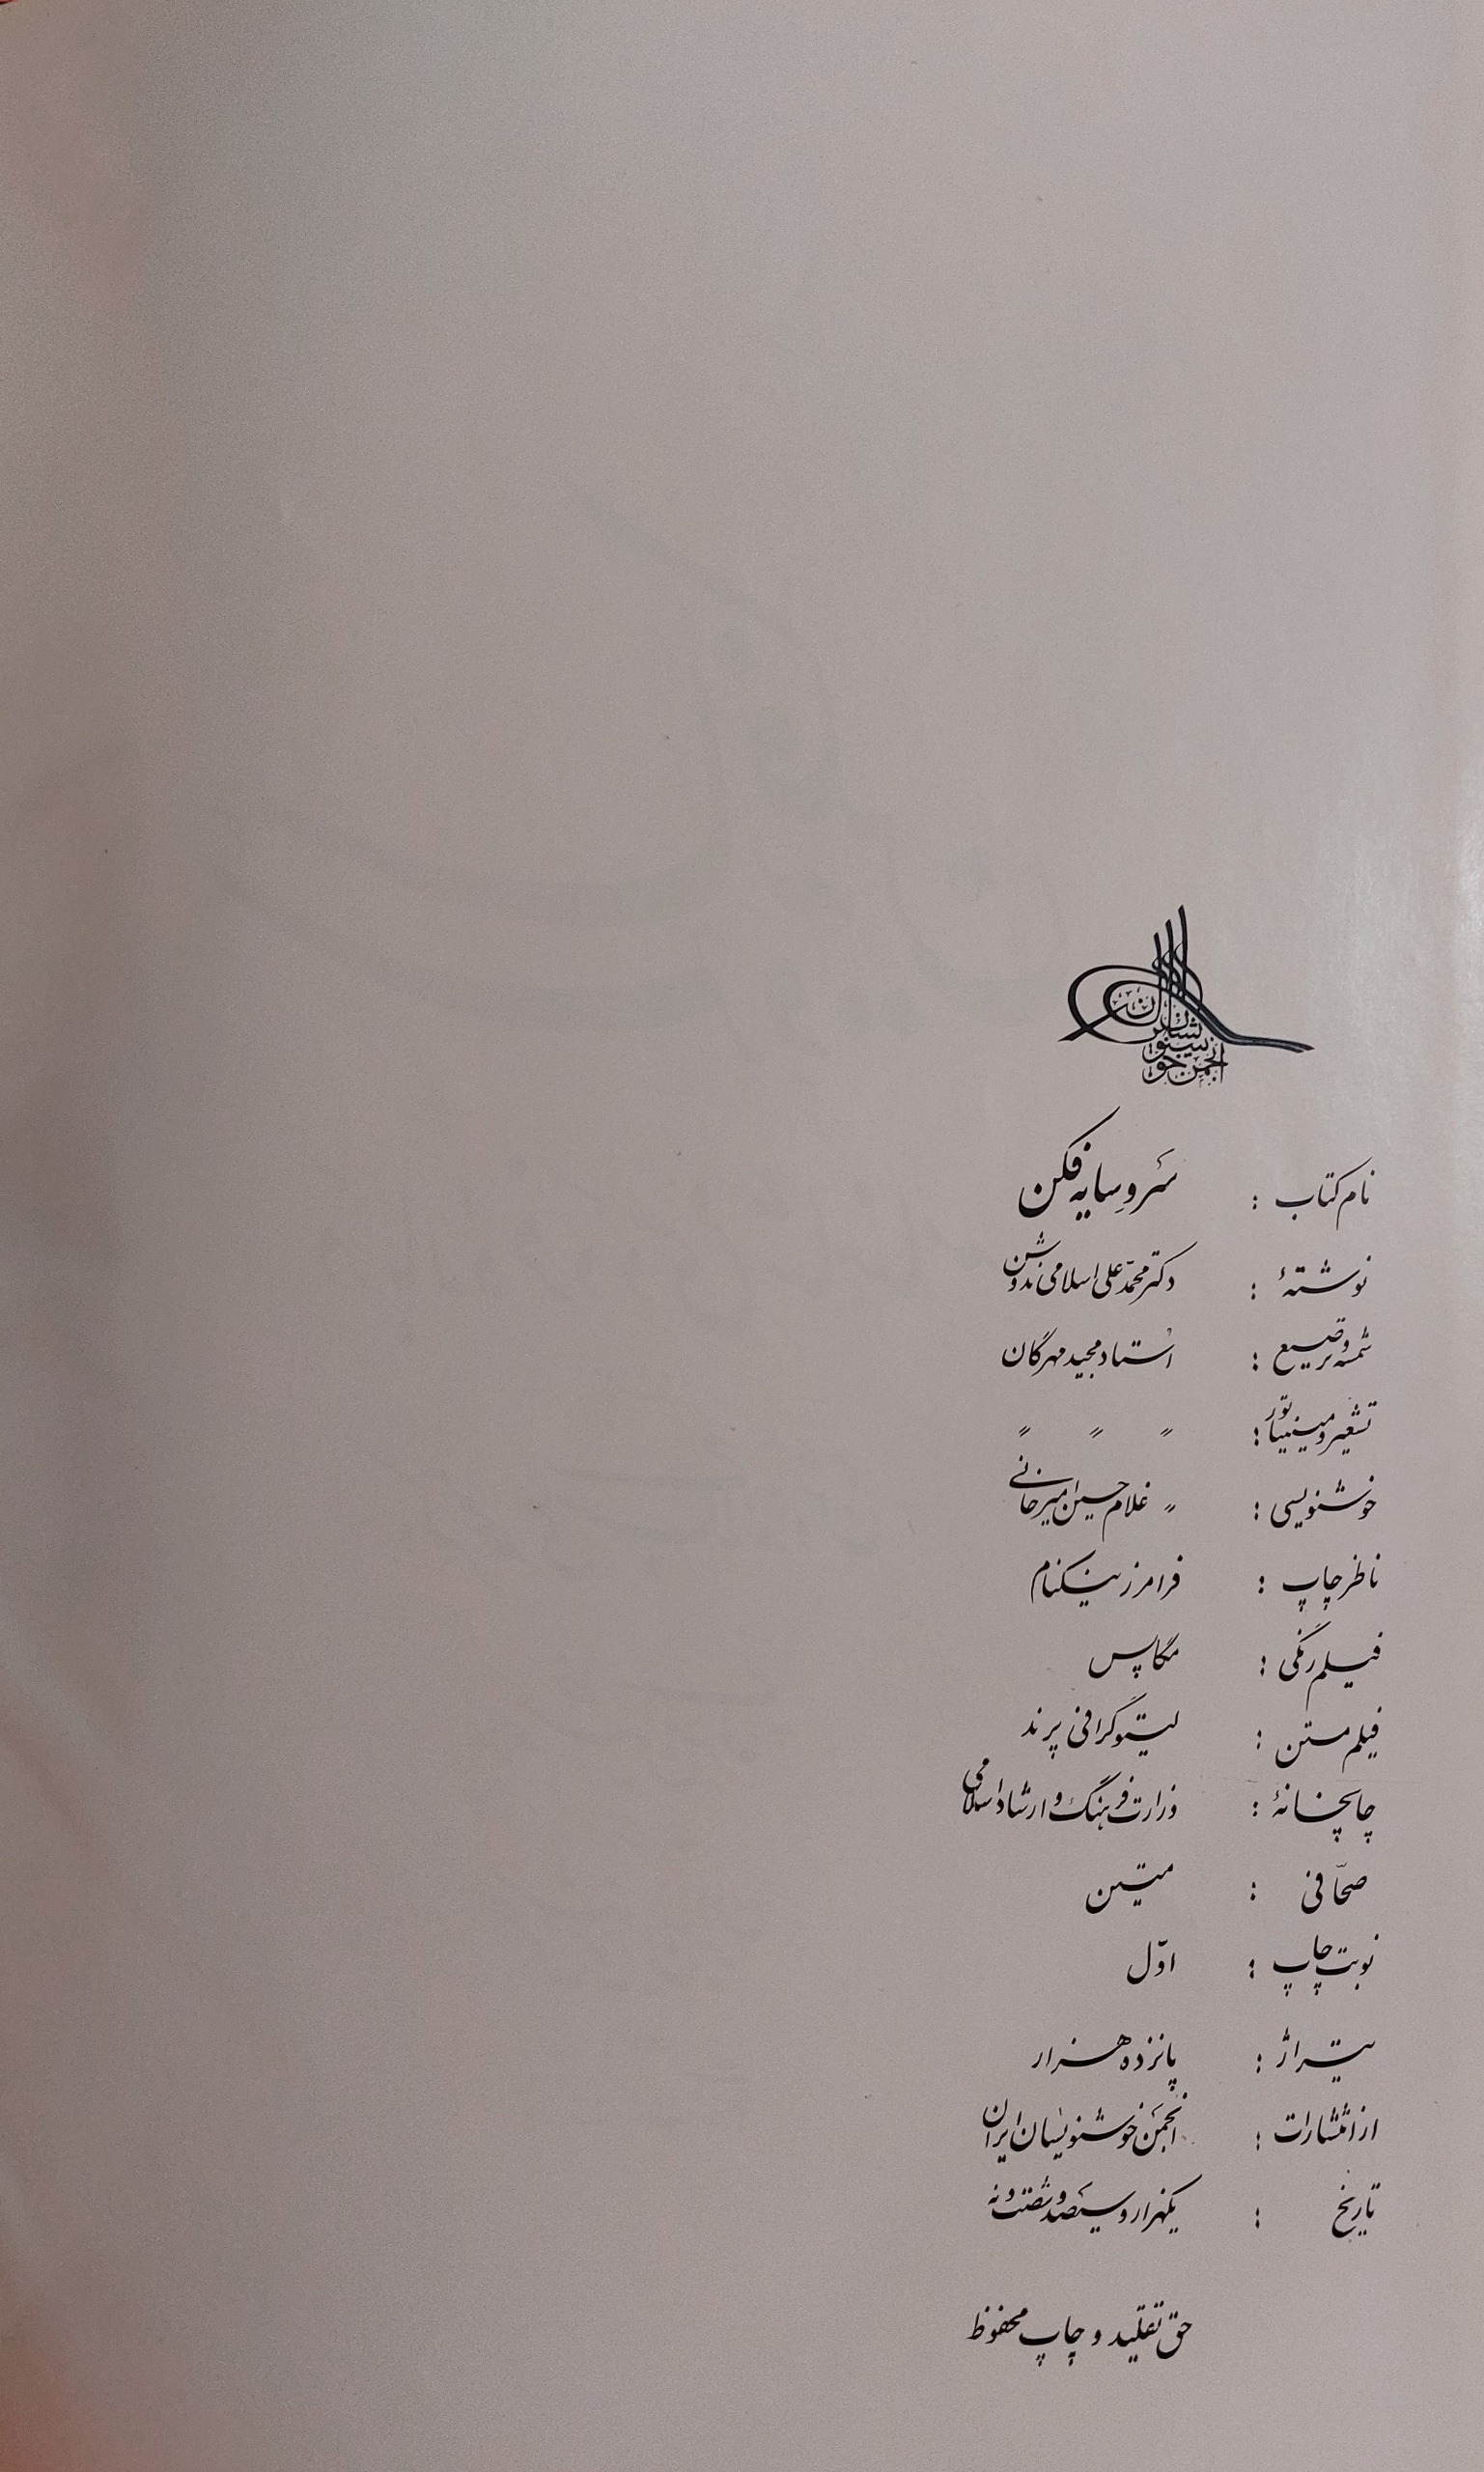 انجمن خوشنویسان ایران
نام کتاب : سرو سایه فکن
نوشتهٔ : دکتر محمّد علی اسلامی ندوشن
شمسه و ترصیع : استاد مجید مهرگان
تشعیر و مینیاتور : " " "
خوشنویسی : " غلامحسین امیرخانی
ناظر چاپ : فرامرز نیکنام
فیلم رنگی : مگاپس
فیلم متن : لیتوگرافی پرند
چاپخانهٔ : وزارت فرهنگ و ارشاد اسلامی
صحّافی : متین
نوبت چاپ : اوّل
تیراژ : پانزده هزار
از انتشارات : انجمن خوشنویسان ایران
تاریخ : یکهزار و سیصد و شصت و نه
حق تقلید و چاپ محفوظ